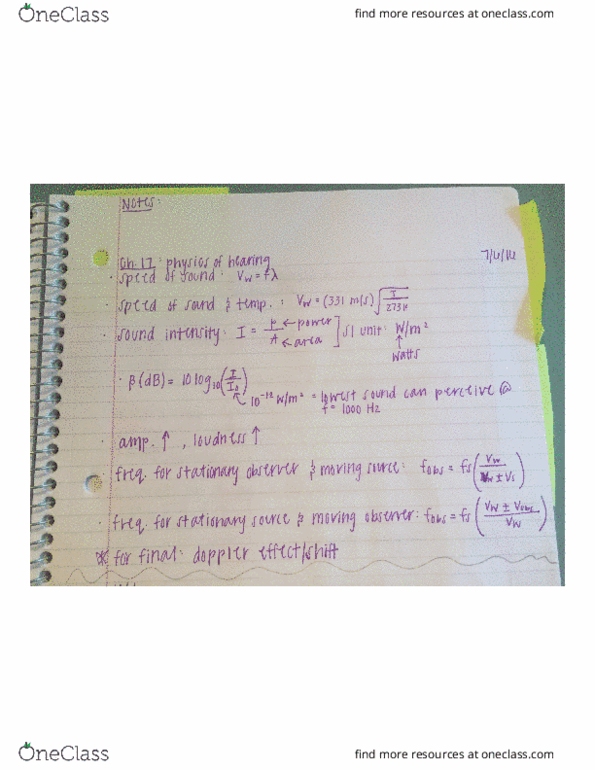 OneClass
find more resources at oneclass.com
Notes:
Ch. 17: physics of hearing
7/6/16
· speed of sound: Vw = fλ
· speed of sound & temp.: Vw = (331 m/s) √(T/273K)
· sound intensity: I = P/A ← power ← area ] SI unit: W/m²
watts
· β (dB) = 10 log10 (I/I0)
10⁻¹² W/m² = lowest sound can percive @
f = 1000 Hz
· amp. ↑, loudness ↑
· freq. for stationary observer & moving source: fobs = fs (Vw / Vw ± Vs)
· freq. for stationary source & moving observer: fobs = fs (Vw ± Vobs / Vw)
* for final: doppler effect/shift
OneClass
find more resources at oneclass.com